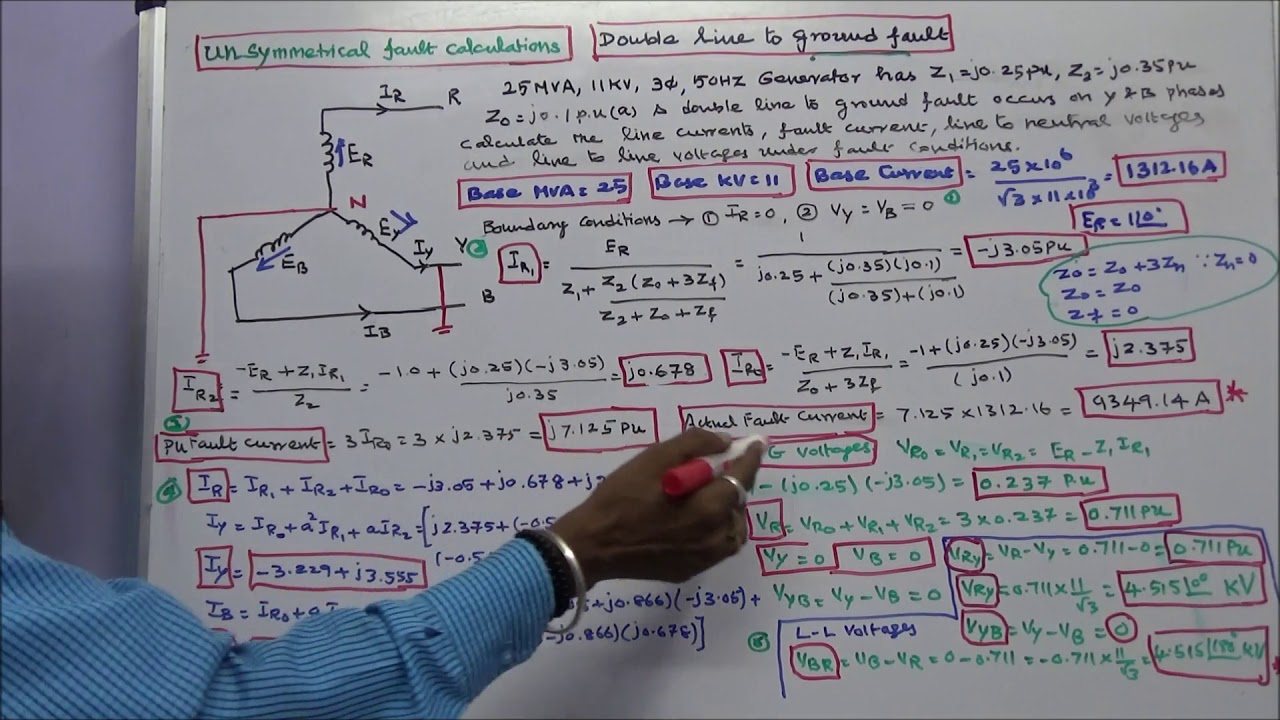 Un Symmetrical fault calculations Double line to ground fault
25 MVA, 11KV, 3φ, 50HZ Generator has Z₁=j0.25pu, Z₂=j0.35pu
Z₀=j0.1 p.u(as a double line to ground fault occurs on Y & B phases
calculate the line currents, fault current, line to neutral voltages
and line to line voltages under fault conditions.
Base MVA=25 Base KV=11 Base Current = 25×10⁶ / √3×11×10³ = 1312.16A
Boundary conditions → ① IR=0, ② VY=VB=0 ①
ER=1∠0°
IR
R
ER
N
EY
IY
Y
EB
B
IB
② IR₁ = ER / Z₁+ Z₂(Z₀+3Zf) / Z₂+Z₀+Zf = 1 / j0.25+ (j0.35)(j0.1) / (j0.35)+(j0.1) = -j3.05pu
Z0=Z₀+3Zn ∵Zn=0
Z₀=Z₀
Zf=0
IR₂ = -ER+Z₁IR₁ / Z₂ = -1.0+(j0.25)(-j3.05) / j0.35 = j0.678
IR₀ = -ER+Z₁IR₁ / Z₀+3Zf = -1+(j0.25)(-j3.05) / (j0.1) = j2.375
PU Fault current = 3IR₀ = 3×j2.375 = j7.125PU
Actual Fault Current = 7.125×1312.16 = 9349.14A *
IR = IR₁+IR₂+IR₀ = -j3.05+j0.678+j2
IY = IR₀+a²IR₁+aIR₂ = [j2.375+(-0.5
(-0.5
IY = -3.229+j3.555
IB = IR₀+a
+j0.866)(-j3.05)+
-j0.866)(j0.678)]
G Voltages VR₀=VR₁=VR₂= ER-Z₁IR₁
1-(j0.25)(-j3.05) = 0.237 P.u
VR = VR₀+VR₁+VR₂ = 3×0.237 = 0.711pu
VY=0 VB=0
VYB = VY-VB = 0
L-L Voltages
VRY = VR-VY = 0.711-0 = 0.711Pu
VRY = 0.711×11/√3 = 4.515∠0° KV
VYB = VY-VB = 0
VBR = VB-VR = 0-0.711 = -0.711×11/√3 = 4.515∠180° KV